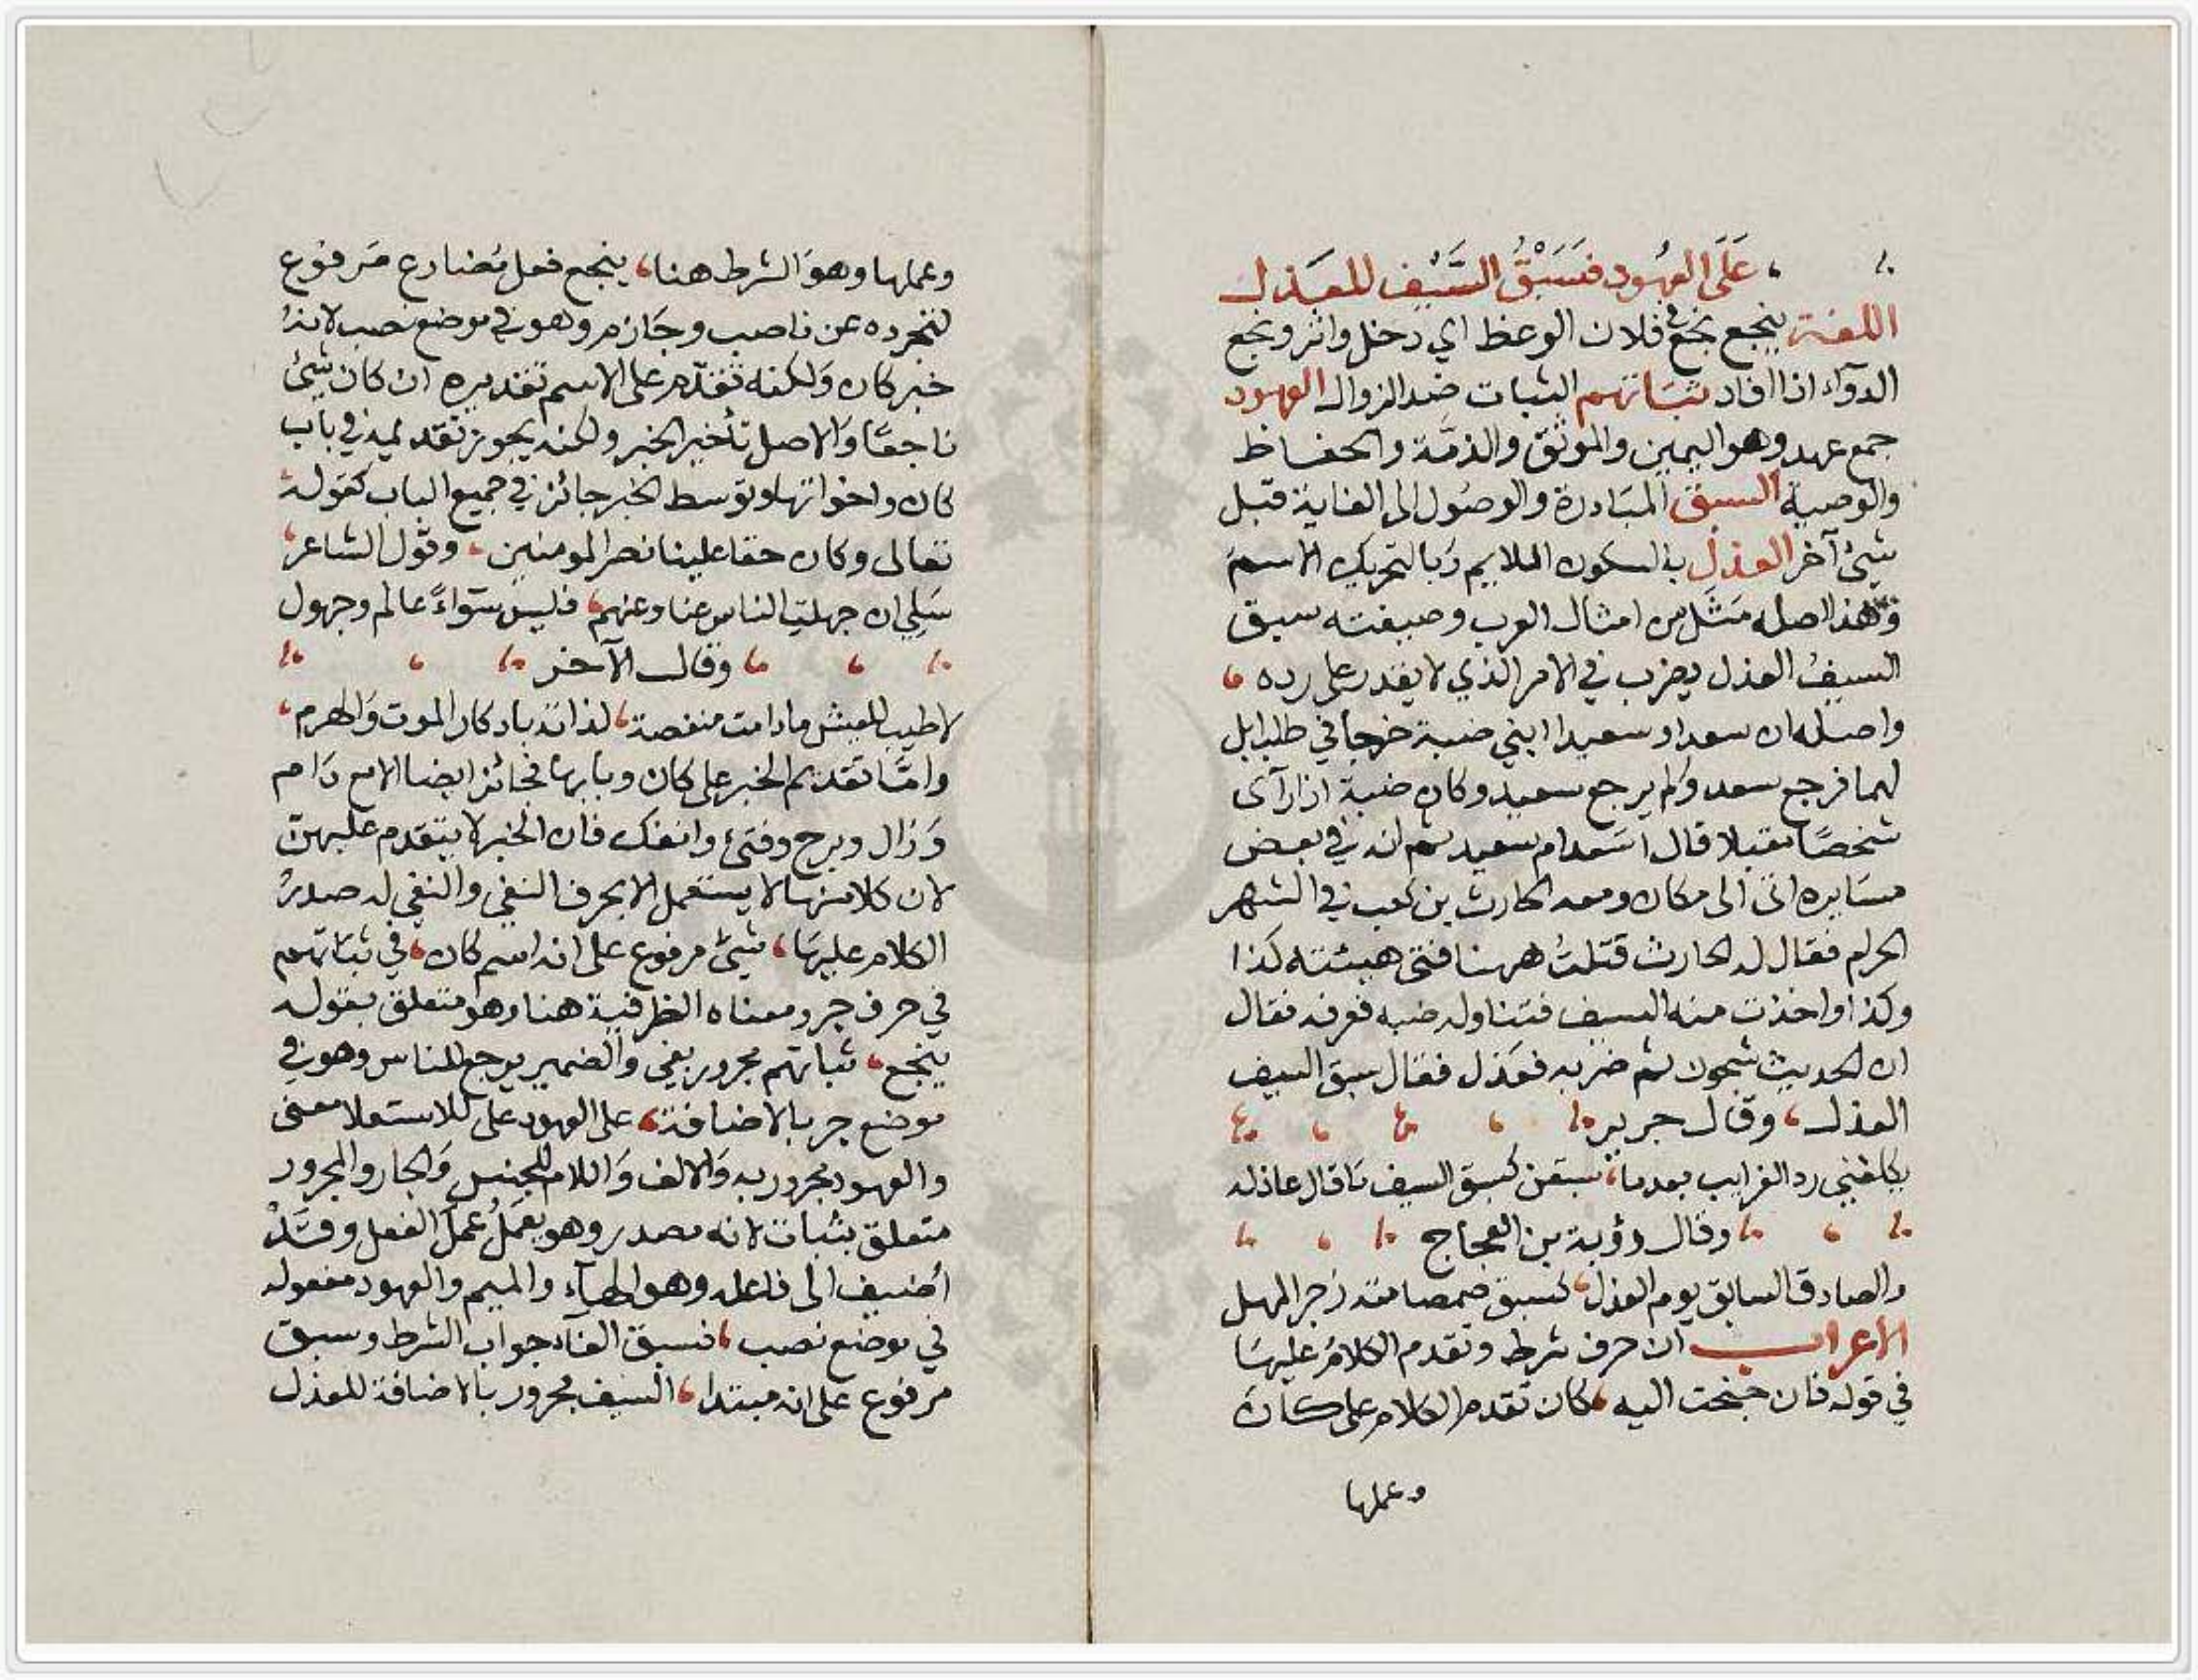 على العهود فسبق السيف للعذل
اللغة ينجع نجع في فلان الوعظ اي دخل واثر ونجع
الدوآء اذا افاد ثباتهم الثبات ضد الزوال العهود
جمع عهد وهو اليمين والموثق والذمة والحفاظ
والوصية السبق المبادرة والوصول الى الغاية قبل
شيئ آخر العذل بالسكون الملايم وبالتحريك الاسم
وهذا اصله مثل من امثال العرب وصيغته سبق
السيف العذل يضرب في الامر الذي لا يقدر على رده
واصله ان سعدا وسعيدا ابني ضبة خرجا في طلب ابل
لهما فرجع سعد ولم يرجع سعيد وكان ضبة اذا رآى
شخصا مقبلا قال اسعد ام سعيد ثم انه في بعض
مسايره اتى الى مكان ومعه الحارث بن كعب في الشهر
الحرام فقال له الحارث قتلت ههنا فتى هيئته كذا
وكذا واخذت منه السيف فتناوله ضبه فعرفه فقال
ان الحديث شجون ثم ضربه فعذل فقال سبق السيف
العذل وقال جرير
يكلفني رد الغرايب بعدما سبقن كسبق السيف ما قال عاذله
وقال رؤبة بن العجاج
والصادق السابق يوم العذل كسبق صمصامة زجر المهل
الاعراب ان حرف شرط وتقدم الكلام عليها
في قوله فان جنحت اليه كان تقدم الكلام على كان
وعملها
وعملها وهو الشرط هنا ينجع فعل مضارع مرفوع
لتجرده عن ناصب وجازم وهو في موضع نصب لانه
خبر كان ولكنه تقدم على الاسم تقديره ان كان شيئ
ناجعا والاصل تأخير الخبر ولكنه يجوز تقديمه في باب
كان واخواتها وتوسط الخبر جائز في جميع الباب كقوله
تعالى وكان حقا علينا نصر المومنين وقول الشاعر
سلي ان جهلت الناس عنا وعنهم فليس سواءً عالم وجهول
وقال الآخر
لا طيب للعيش ما دامت منغصة لذاته بادكار الموت والهرم
وامّا تقديم الخبر على كان وبابها فجائز ايضا الا مع دام
وزال وبرح وفتئ وانفك فان الخبر لا يتقدم عليهن
لان كلا منها لا يستعمل الا بحرف النفي والنفي له صدر
الكلام عليها شيئ مرفوع على انه اسم كان في ثباتهم
في حرف جر ومعناه الظرفية هنا وهو متعلق بقوله
ينجع ثباتهم مجرور بفي والضمير يرجع للناس وهو في
موضع جر بالاضافة على العهود على للاستعلا معنى
والعهود مجرور به والالف واللام للجنس والجار والمجرور
متعلق بثبات لانه مصدر وهو يعمل عمل الفعل وقد
أضيف الى فاعله وهو الهآء والميم والعهود مفعوله
في موضع نصب فسبق الفآء جواب الشرط وسبق
مرفوع على انه مبتدا السيف مجرور بالاضافة للعذل